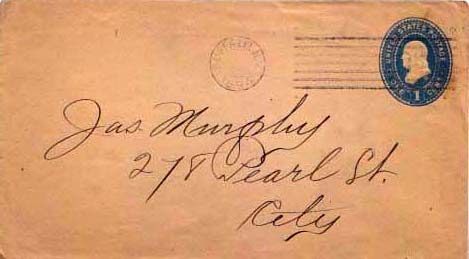 UNITED STATES POSTAGE
1
Jas. Murphy
278 Pearl St.
City